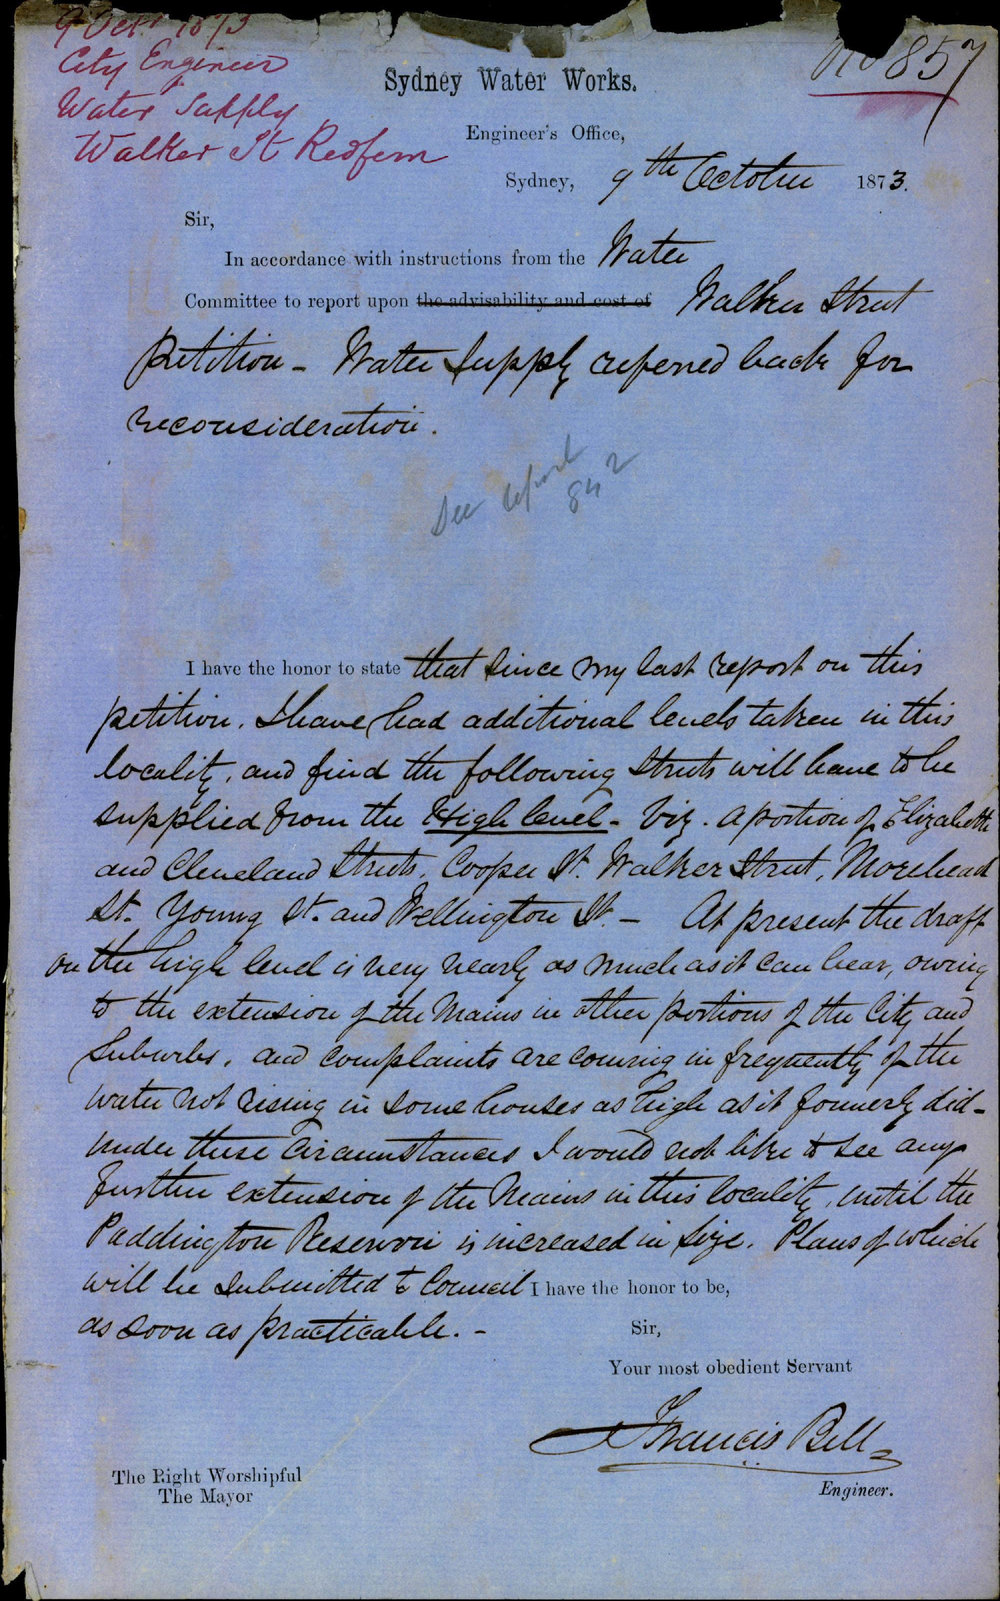 9 Oct 1873
City Engineer
Water Supply
Walker St Redfern
No 857
Sydney Water Works.
Engineer's Office,
Sydney, 9th October 1873.
Sir,
In accordance with instructions from the Water
Committee to report upon the advisability and cost of Walker Street
petition - Water Supply referred back for
reconsideration.
See report
842
I have the honor to state that since my last report on this
petition. I have had additional levels taken in this
locality, and find the following Streets will have to be
supplied from the High level - Viz. a portion of Elizabeth
and Cleveland Streets, Cooper St. Walker Street, Morehead
St. Young St. and Wellington St. - At present the draft
on the high level is very nearly as much as it can bear, owing
to the extension of the Mains in other portions of the City and
Suburbs, and complaints are coming in frequently of the
water not rising in some houses as high as it formerly did -
under these circumstances I would not like to see any
further extension of the Mains in this locality, until the
Paddington Reservoir is increased in size. Plans of which
will be submitted to Council I have the honor to be,
as soon as practicable. -
Sir,
Your most obedient Servant
Francis Bell
Engineer.
The Right Worshipful
The Mayor